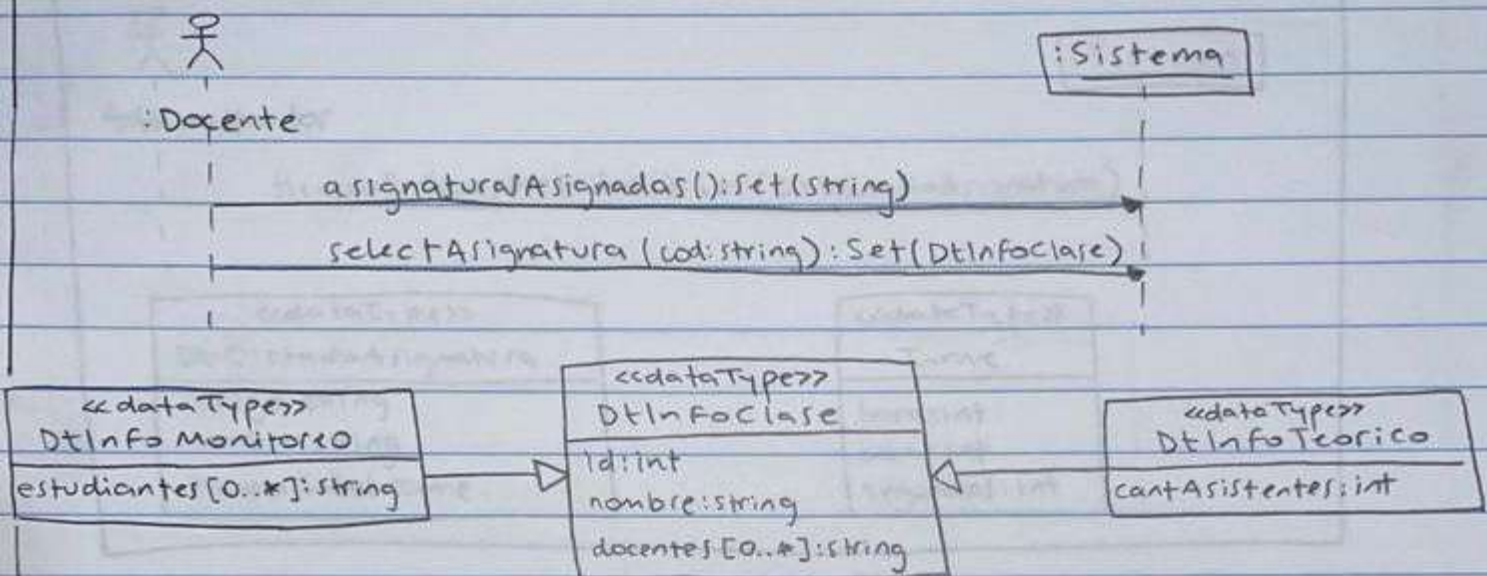 :Sistema
:Docente
asignaturasAsignadas():Set(string)
selectAsignatura (cod:string): Set(DtInfoClase)
<<dataType>>
DtInfoMonitoreo
estudiantes[0..*]:string
<<dataType>>
DtInfoClase
id:int
nombre:string
docentes[0..*]:string
<<dataType>>
DtInfoTeorico
cantAsistentes:int